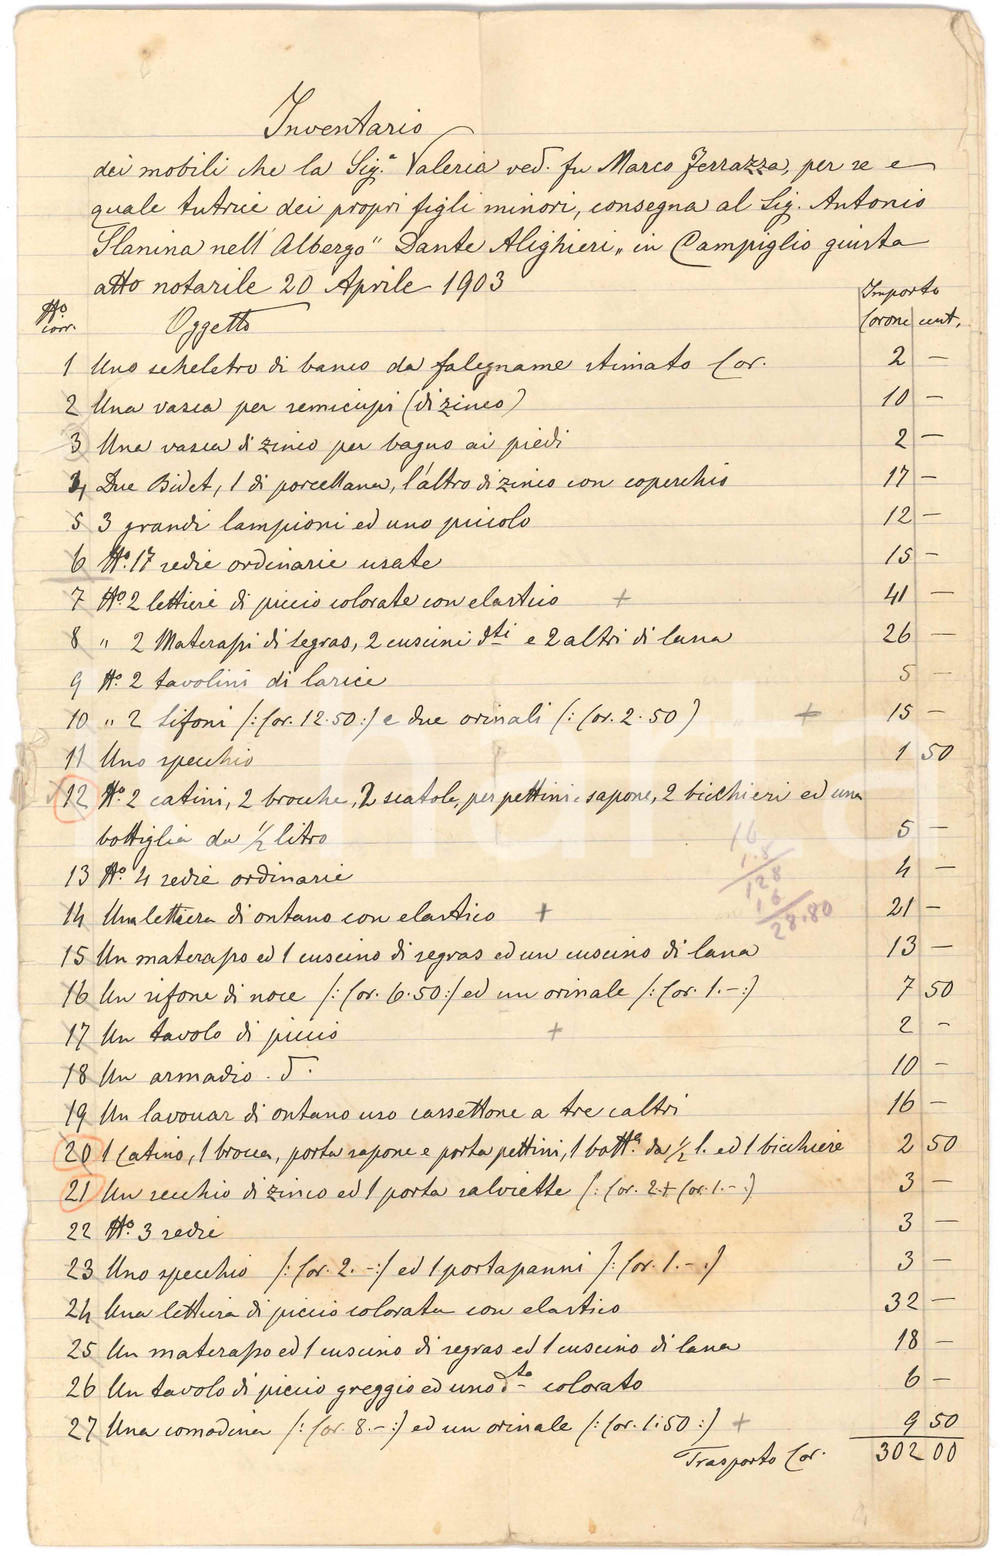 Inventario
dei mobili che la Sig.ª Valeria ved. fu Marco Terrazza, per se e
quale tutrice dei propri figli minori, consegna al Sig. Antonio
Slanina nell' Albergo "Dante Alighieri" in Campiglio giusta
atto notarile 20 Aprile 1903
No. corr. Oggetto Importo Corone cent.
1 Uno scheletro di banco da falegname stimato Cor. 2 —
2 Una vasca per semicupi (di zinco) 10 —
3 Una vasca di zinco per bagno ai piedi 2 —
4 Due Bidet, 1 di porcellana, l'altro di zinco con coperchio 17 —
5 3 grandi lampioni ed uno piccolo 12 —
6 No. 17 sedie ordinarie usate 15 —
7 No. 2 lettiere di piccio colorate con elastico + 41 —
8 " 2 Materassi di segras, 2 cuscini dti e 2 altri di lana 26 —
9 No. 2 tavolini di larice 5 —
10 " 2 Sifoni /: Cor. 12.50 :/ e due orinali /: Cor. 2.50 ) + 15 —
11 Uno specchio 1 50
12 No. 2 catini, 2 brocche, 2 scatole, per pettini e sapone, 2 bicchieri ed una
bottiglia da 1/2 litro 5 —
13 No. 4 sedie ordinarie 4 —
14 Una lettiera di ontano con elastico + 21 —
15 Un materasso ed 1 cuscino di segras ed un cuscino di lana 13 —
16 Un sifone di noce /: Cor. 6.50 :/ ed un orinale /: Cor. 1.— :/ 7 50
17 Un tavolo di piccio + 2 —
18 Un armadio d. 10 —
19 Un lavouar di ontano uso cassettone a tre caltri 16 —
20 1 Catino, 1 brocca, porta sapone e porta pettini, 1 botta. da 1/2 l. ed 1 bicchiere 2 50
21 Un secchio di zinco ed 1 porta salviette /: Cor. 2 + Cor. 1.— :/ 3 —
22 No. 3 sedie 3 —
23 Uno specchio /: Cor. 2.— :/ ed 1 portapanni /: Cor. 1.— :/ 3 —
24 Una lettiera di piccio colorata con elastico 32 —
25 Un materasso ed 1 cuscino di segras ed 1 cuscino di lana 18 —
26 Un tavolo di piccio greggio ed uno dto colorato 6 —
27 Una comodina /: Cor. 8.— :/ ed un orinale /: Cor. 1.50 :/ + 9 50
Trasporto Cor. 302 00
16
1.8
128
16
28.80